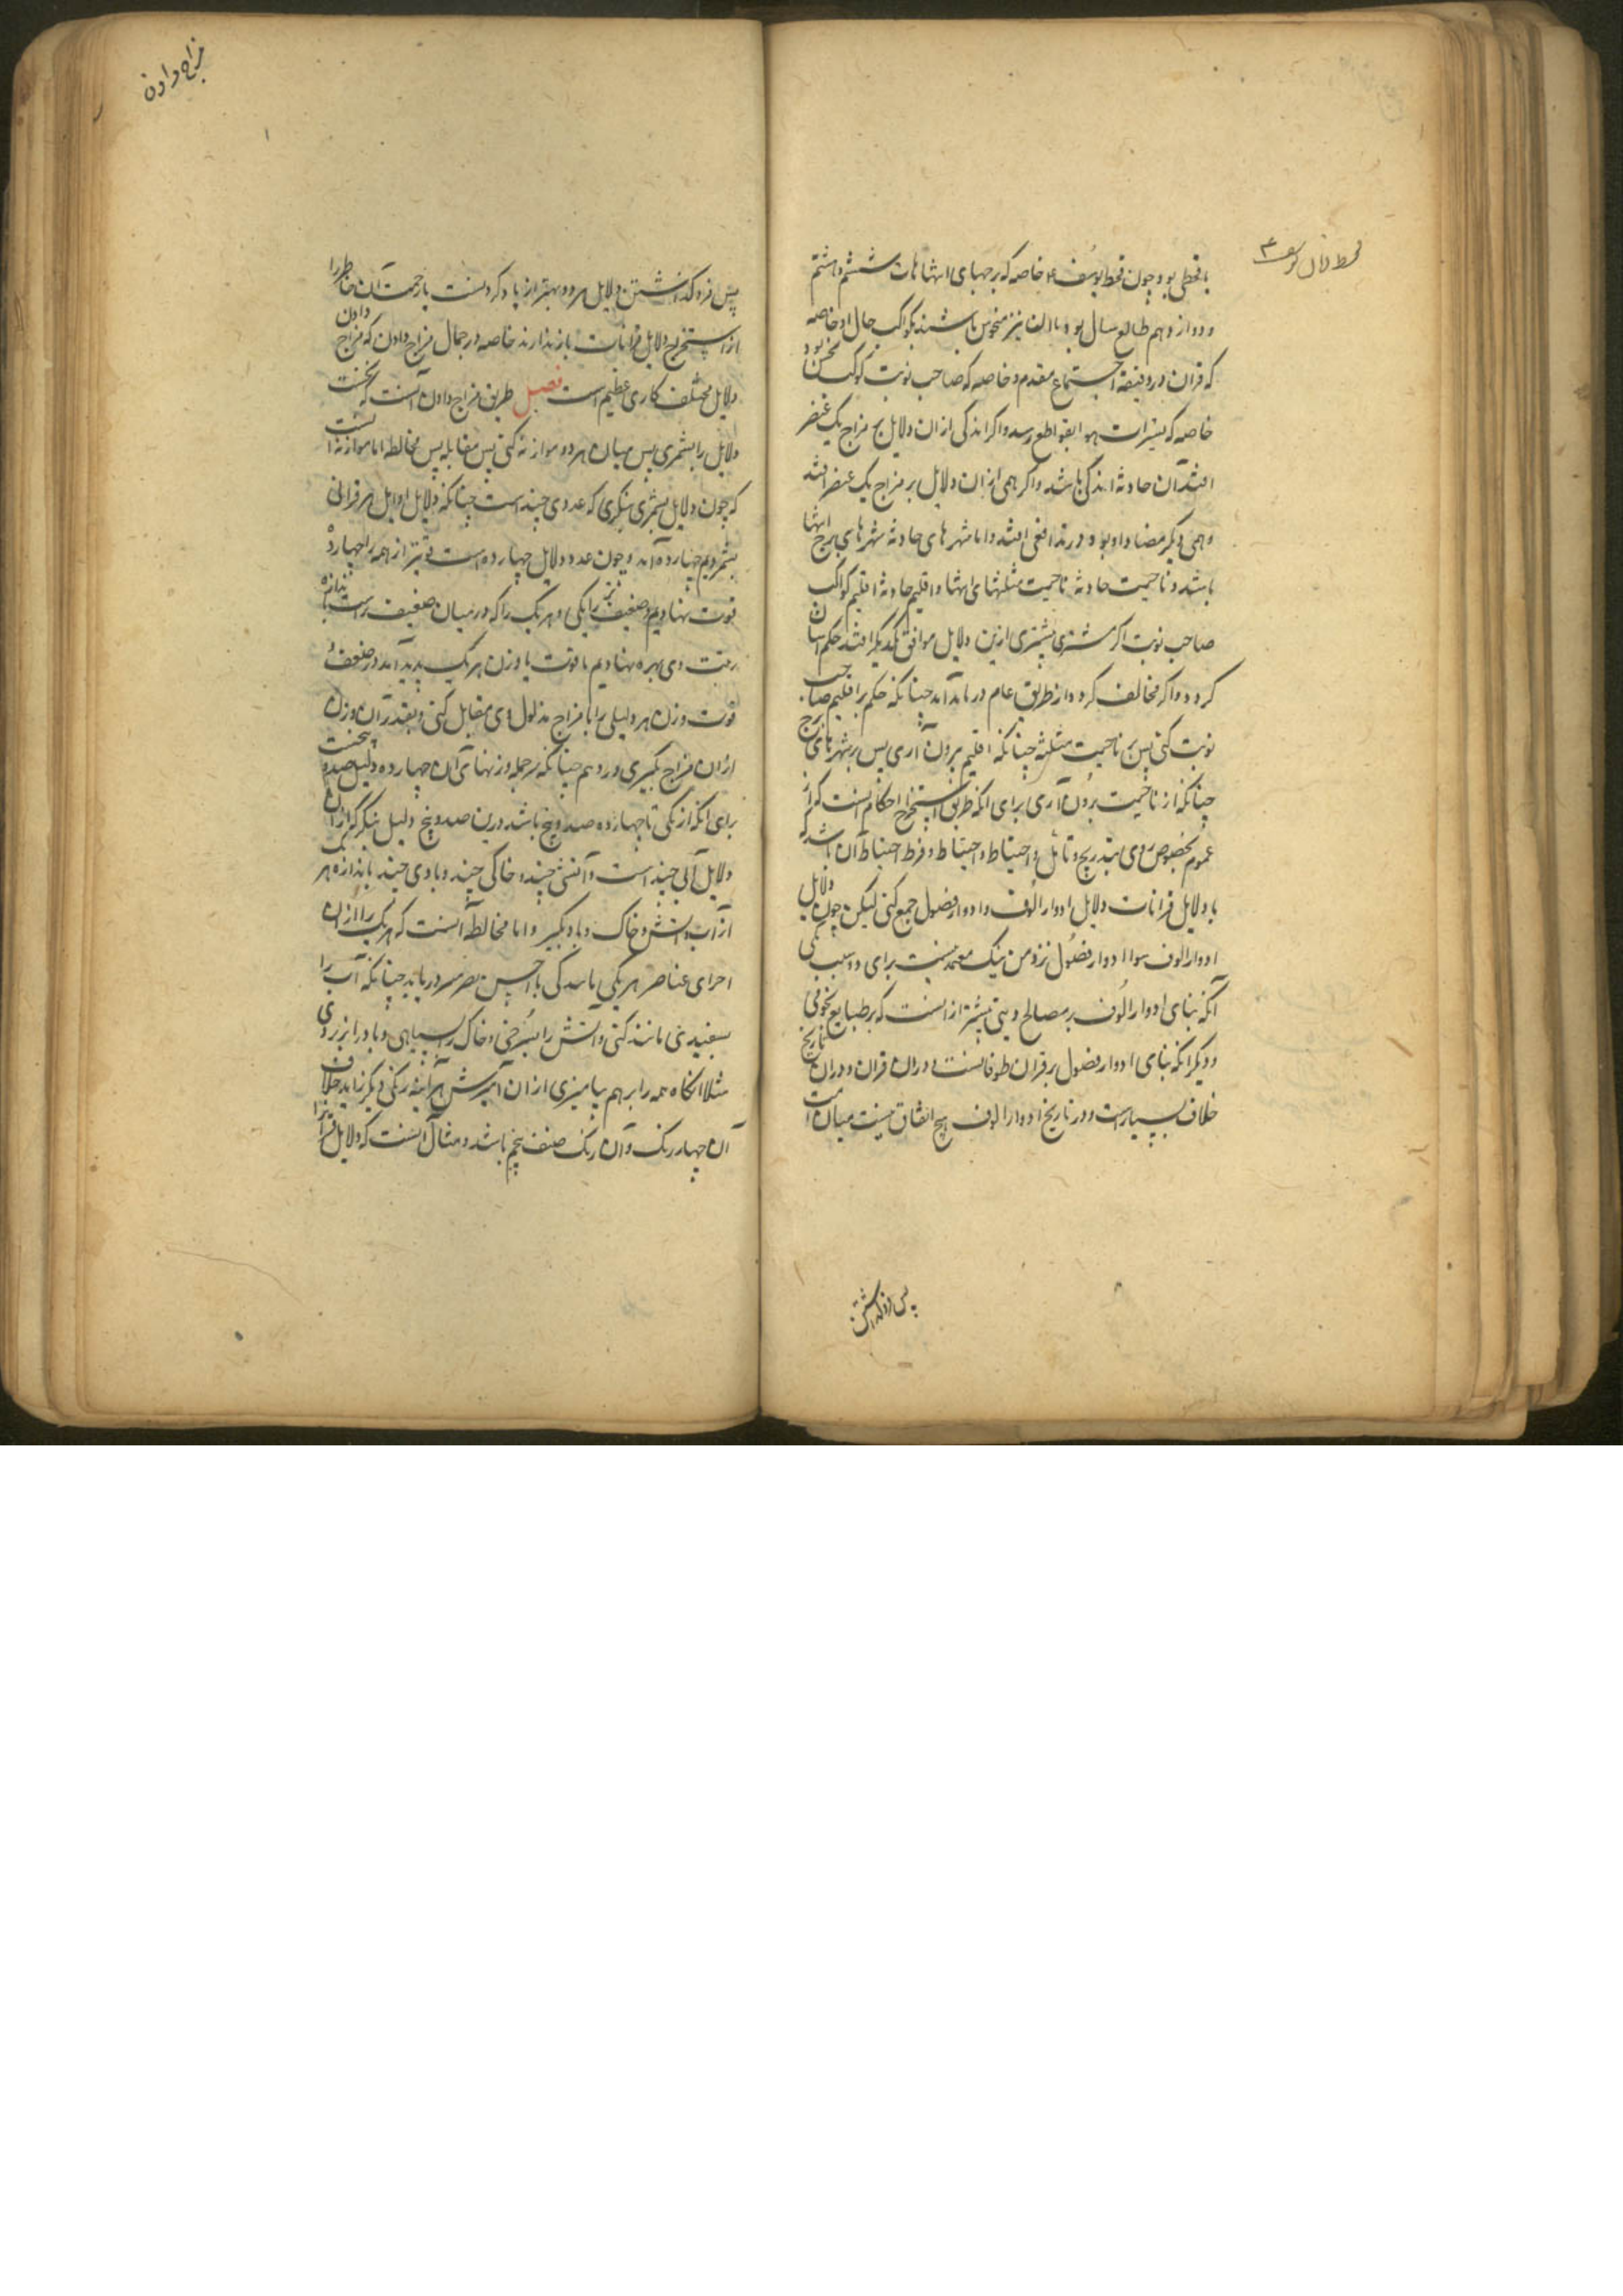 با قحطی بود چون قحط یوسف ع خاصه که برجهای انتهاات ششم و هشتم
و دوازدهم طالع سال بود و با آن نیز منحوس باشند بکواکب حال او خاصه
که قران در دقیقه اجتماع مقدم و خاصه که صاحب نوبت کوکب نحس بود
خاصه که تسییرات هوا بقواطع رسد و اگر اندکی از آن دلایل بر مزاج یک عنصر
افتد آن حادثه اندکی باشد و اگر همی از آن دلایل بر مزاج یک عنصر افتد
و همی دیگر مضاد او بود و در تدافعی افتد و اما شهرهای حادثه شهرهای برج انتها
باشد و ناحیت حادثه ناحیت مثلثهای انتها و اقلیم حادثه اقلیم کواکب
صاحب نوبت اگر بیشتری ازین دلایل موافق یکدیگر افتد حکم آسان
گردد و اگر مخالف گردد از طریق عام در باید آمد چنانکه حکم بر اقلیم صاحب
نوبت کنی پس بر ناحیت مثلثه چنانکه از اقلیم برون آری پس بر شهرهای برج
چنانکه از ناحیت برون آری برای آنکه طریق استخراج احکام آنست که از
عموم بخصوص روی بتدریج و تأمل و احتیاط و احتیاط و فرط احتیاط آن باشد که
با دلایل قرانات دلایل ادوار الوف و ادوار فصول جمع کنی لیکن چون دلایل
ادوار الوف و ادوار فصول نزد من نیک معتمد نیست برای دو سبب یکی
آنکه بنای ادوار الوف بر مصالح دینی بیشتر از آنست که بر طبایع نجومی
و دیگر آنکه بنای ادوار فصول بر قران طوفانست و در آن قران و در آن تاریخ
خلاف بسیارست و در تاریخ ادوار الوف هیچ اتفاق نیست میان امت
قحط زمان یوسف ع
پس فرو گذاشتن
مزاج دادن
پس فرو گذاشتن دلایل هر دو بهتر از یاد کردنست تا زحمت آن خاطر را
از استخراج دلایل قرانات باز ندارند خاصه در جمال مزاج دادن که مزاج دادن
دلایل مختلف کاری عظیم است فصل طریق مزاج دادن آنست که نخست
دلایل را بشمری پس میان هر دو موازنه کنی پس مقابله پس مخالطه اما موازنه آنست
که چون دلایل بشمری بنگری که عددی چند است چنانکه دلایل اوایل هر قرانی
بشمردیم چهارده آمد و چون عدد دلایل چهارده است قوی‌تر از همه را چهارده
قوت نهادیم و ضعیف‌تر را یکی و هر یک را که در میان ضعیف‌تر است باندازه
رتبت وی بهره نهادیم تا قوت یا وزن هر یک پدید آمد در ضعف و
قوت وزن هر دلیلی را با مزاج مدلول وی مقابل کنی و بقدر آن وزن
از آن مزاج بگیری و در هم چنانکه بر جمله وزنهای آن چهارده دلیل صد و پنجست
برای آنکه از یکی تا چهارده صد و پنج باشد درین صد و پنج دلیل بنگر کز آن
دلایل آبی چند است و آتشی چند و خاکی چند و بادی چند باندازه هر یکی
از آب و آتش و خاک و باد بگیر و اما مخالطه آنست که هر یک را از آن
اجزای عناصر هر یکی مانند کنی تا حس بصر در یابد چنانکه آب را
بسفیدی مانند کنی و آتش را بسرخی و خاک را بسیاهی و باد را بزردی
مثلا آنگاه همه را بر هم بیامیزی از آن آمیزش هرآینه رنگی دیگر زاید خلاف
آن چهار رنگ و آن رنگ صنف پنجم باشد و مثال آنست که دلایل قرانرا